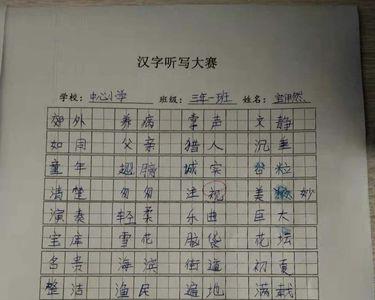 汉字听写大赛
学校：中心小学 班级：三年一班 姓名：
郊外 养病 掌声 文静
如同 父亲 猎人 沉重
童年 翅膀 诚实 谷粒
清楚 匆匆 注视 美妙
演奏 轻柔 乐曲 巨大
宝库 雪花 脑袋 花坛
名贵 海滨 街道 初夏
整洁 渔民 遍地 满载